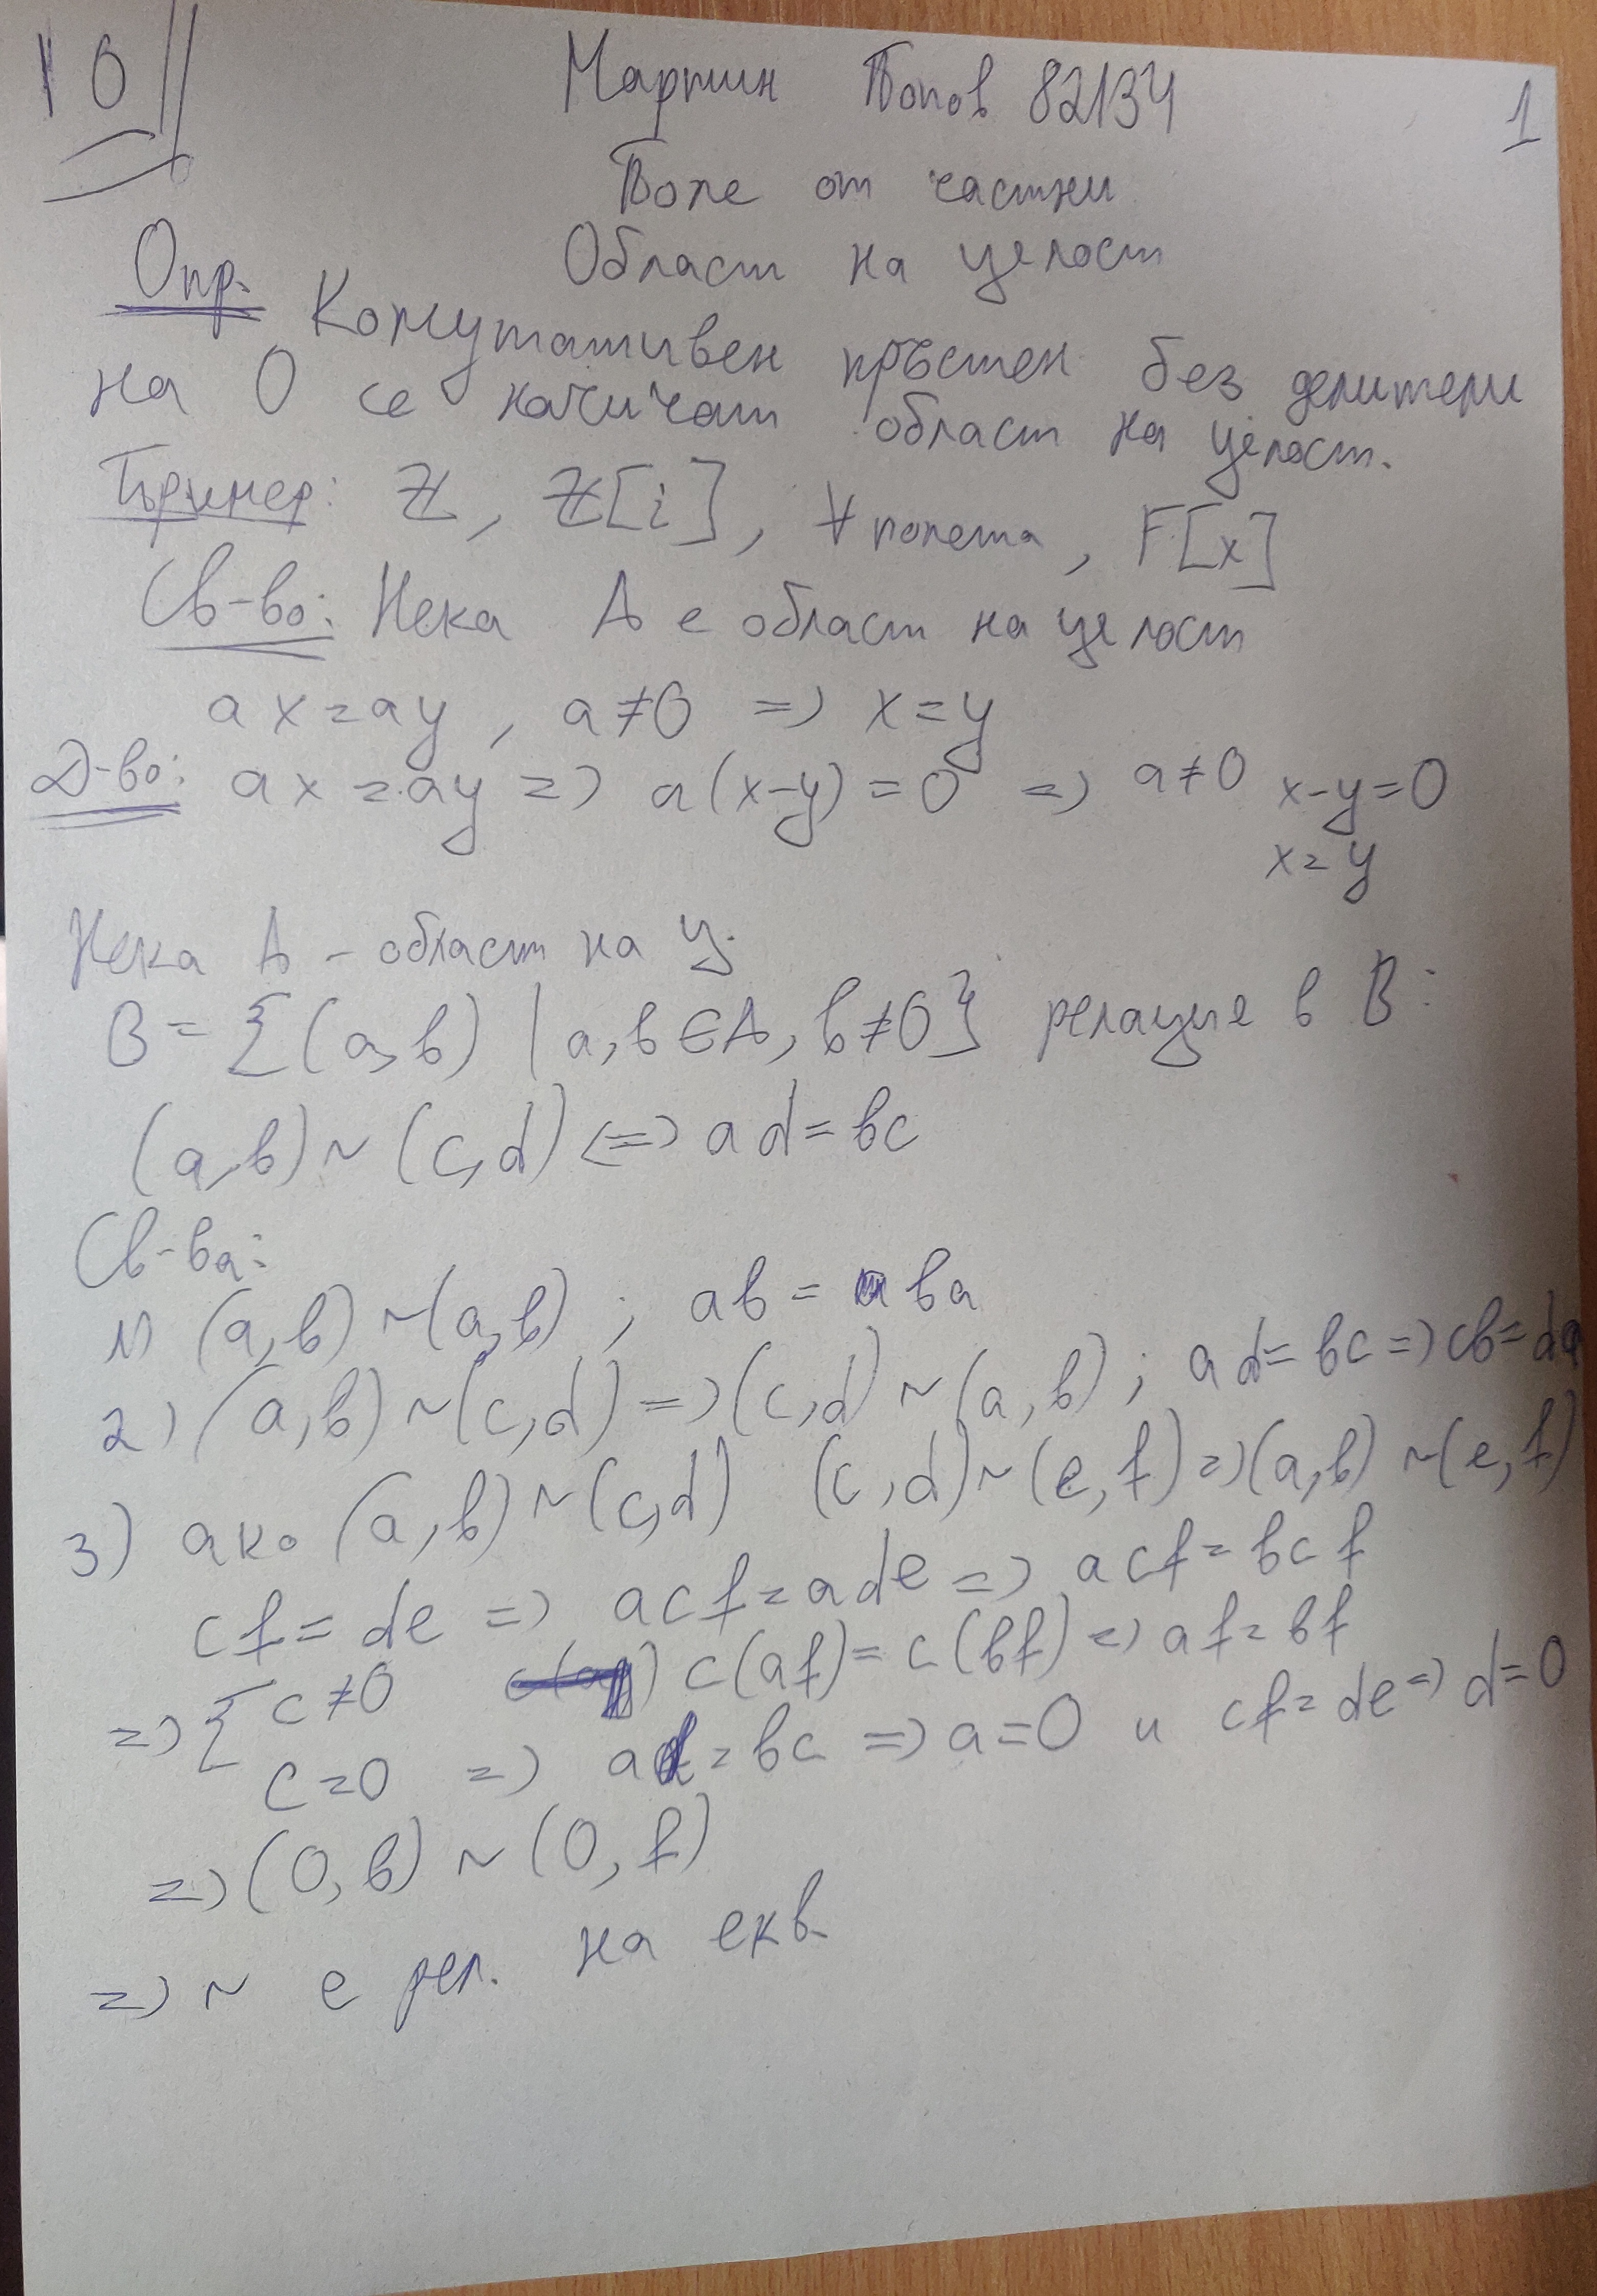 10
Мартин Попов 82134
1
Поле от частни
Област на целост
Опр. Комутативен пръстен без делители
на 0 се наричат област на целост.
Пример: ℤ, ℤ[i], ∀ полета, F[x]
Св-во: Нека A е област на целост
ax=ay, a≠0 => x=y
Д-во: ax=ay => a(x-y)=0 => a≠0 x-y=0
x=y
Нека A - област на ц.
B={(a,b) | a,b∈A, b≠0} релация в B:
(a,b)~(c,d) <=> ad=bc
Св-ва:
1) (a,b)~(a,b) ; ab = ba
2) (a,b)~(c,d) => (c,d)~(a,b) ; ad=bc => cb=da
3) ако (a,b)~(c,d) (c,d)~(e,f) => (a,b)~(e,f)
cf=de => acf=ade => acf=bcf
=> { c≠0 c(af)=c(bf) => af=bf
c=0 => ad=bc => a=0 и cf=de => d=0
=> (0,b)~(0,f)
=> ~ е рел. на екв.